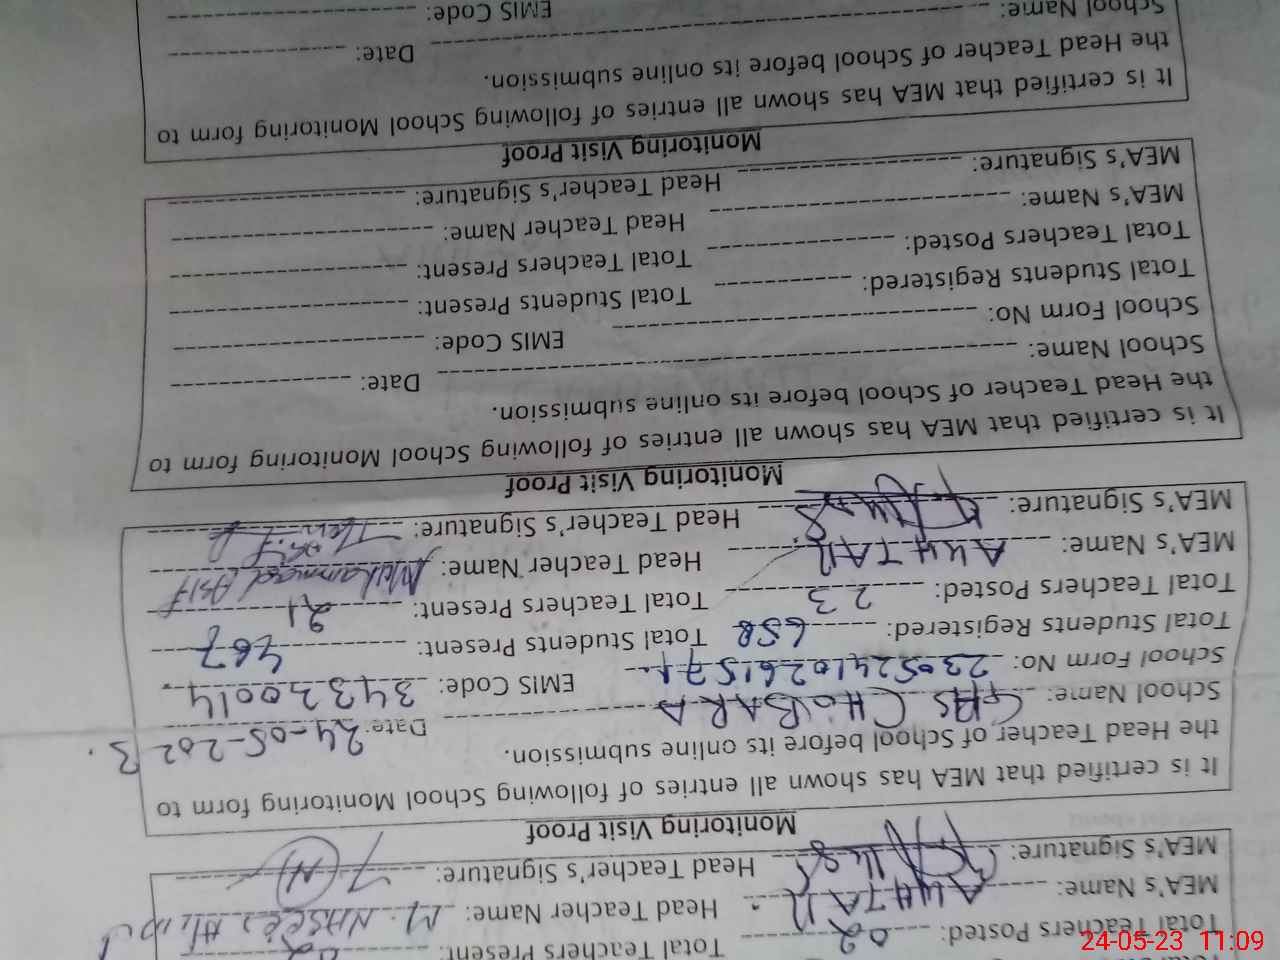 Total Teachers Posted: 02 Total Teachers Present: 02
MEA's Name: Head Teacher Name: M.
MEA's Signature: Head Teacher's Signature:
Monitoring Visit Proof
It is certified that MEA has shown all entries of following School Monitoring form to
the Head Teacher of School before its online submission.
School Name: GHS CHOBARA Date: 24-05-2023.
School Form No: EMIS Code: 34320014
Total Students Registered: 658 Total Students Present: 467
Total Teachers Posted: 23 Total Teachers Present: 21
MEA's Name: Head Teacher Name: Muhammad Asif
MEA's Signature: Head Teacher's Signature:
Monitoring Visit Proof
It is certified that MEA has shown all entries of following School Monitoring form to
the Head Teacher of School before its online submission.
School Name: Date:
School Form No: EMIS Code:
Total Students Registered: Total Students Present:
Total Teachers Posted: Total Teachers Present:
MEA's Name: Head Teacher Name:
MEA's Signature: Head Teacher's Signature:
Monitoring Visit Proof
It is certified that MEA has shown all entries of following School Monitoring form to
the Head Teacher of School before its online submission.
School Name: Date:
EMIS Code:
24-05-23 11:09